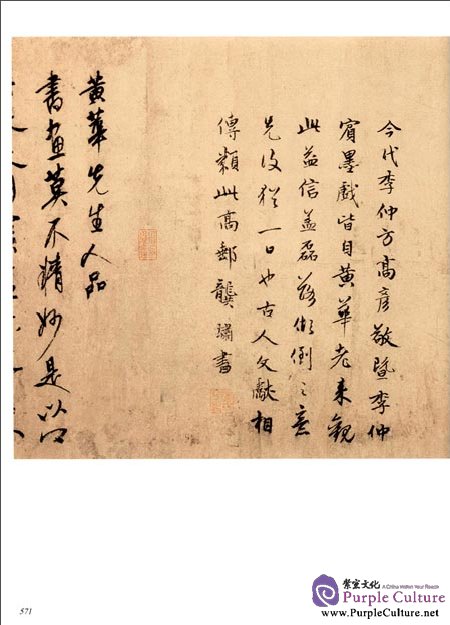 今代李仲方高彦敬暨李仲
賓墨戲皆自黃華老來觀
此益信蓋磊落倒之意
先後猶一日也古人文獻相
傳類此高郵龔璛書
黃華先生人品
書畫莫不精妙是以
571
紫宝文化 A China Within Your Reach
Purple Culture
www.PurpleCulture.net